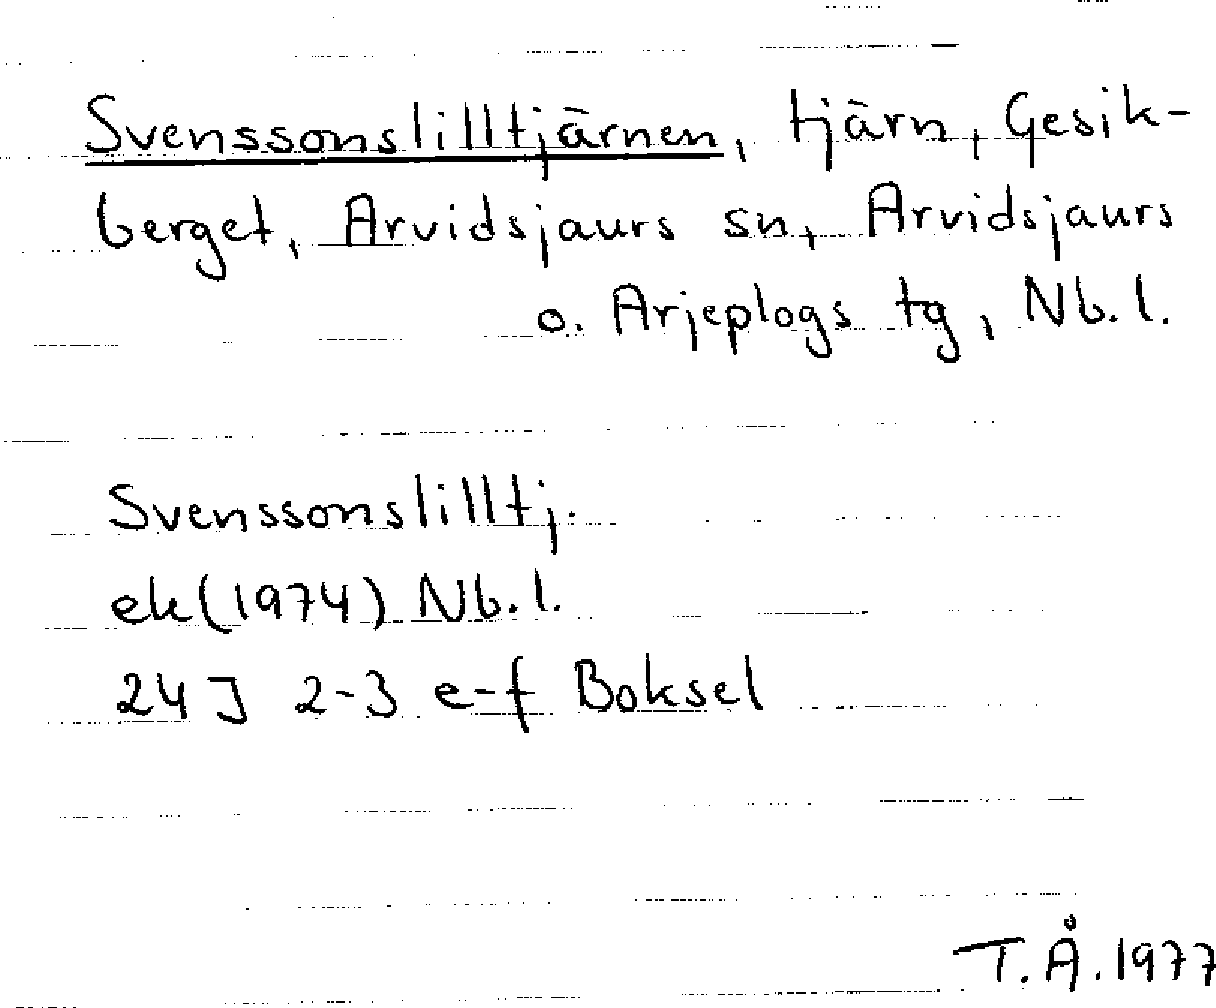 Svenssonslilltjärnen, tjärn, Gesik-
berget, Arvidsjaurs sn, Arvidsjaurs
o. Arjeplogs tg, Nb.l.
Svenssonslilltj.
ek(1974) Nb.l.
24J 2-3 e-f Boksel
T.Å.1977